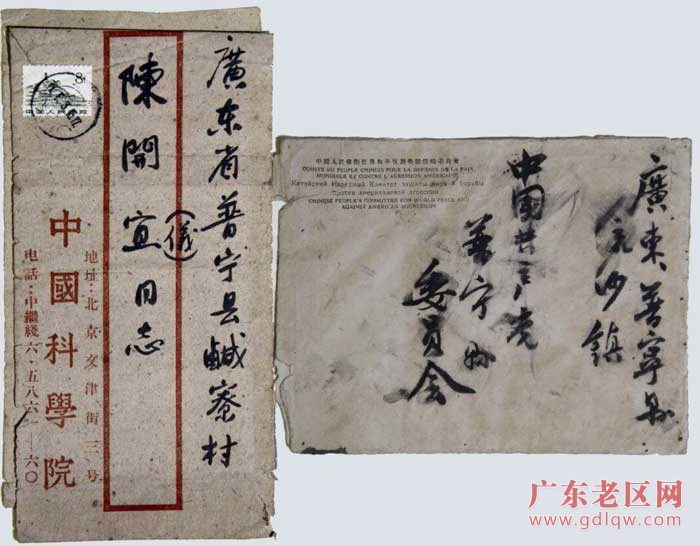 廣东省普宁县鹹寮村
陳開宜同志
(儀)
中國科學院
地址:北京文津街三号
电話:中繼綫六·五八六一—六〇
8
中国人民邮政
中國人民保衛世界和平反對美國侵略委員會
COMITE DU PEUPLE CHINOIS POUR LA DEFENSE DE LA PAIX
MONDIALE ET CONTRE L'AGRESSION AMERICAINE
Китайский Народный Комитет защиты мира и борьбы
против американской агрессии
CHINESE PEOPLE'S COMMITTEE FOR WORLD PEACE AND
AGAINST AMERICAN AGGRESSION
廣東普寧县
流沙鎮
中国共产党
普宁縣
委員会
广东老区网
www.gdlqw.com